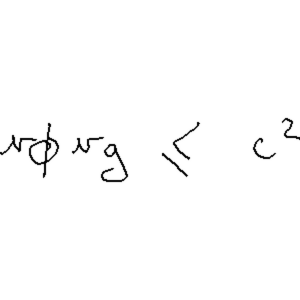 vϕ vg ≤ c²